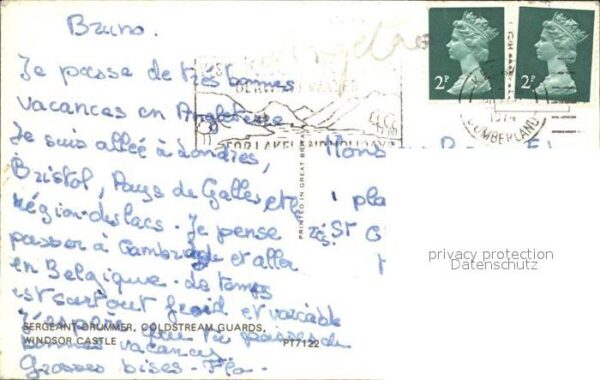 Bruno.
Je passe de très bonnes
vacances en Angleterre
Je suis allée à Londres,
Bristol, Pays de Galles, et
région des lacs. Je pense
passer à Cambridge et aller
en Belgique. Le temps
est surtout froid et variable
J'espère que tu passes de
bonnes vacances
Grosses bises. Flo.
SERGEANT DRUMMER, COLDSTREAM GUARDS,
WINDSOR CASTLE PT7122
PRINTED IN GREAT BRITAIN
DERWENTWATER
FOR LAKELAND HOLIDAYS
2P
2P
1974
CUMBERLAND
Mons
1 pla
St
privacy protection
Datenschutz